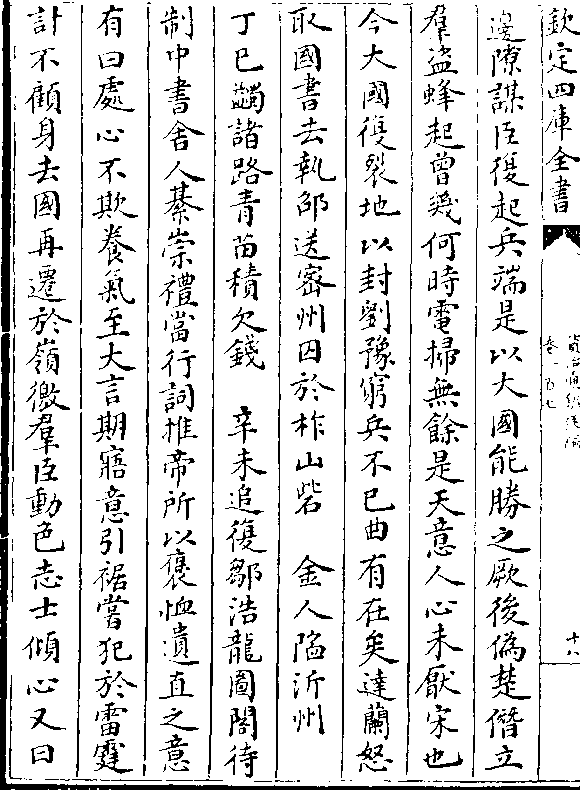 欽定四庫全書
資治通鑑後編
卷一百七
十八
邊隙謀臣復起兵端是以大國能勝之厥後偽楚僭立
羣盜蜂起曾幾何時電掃無餘是天意人心未厭宋也
今大國復裂地以封劉豫窮兵不已曲有在矣達蘭怒
取國書去執邵送密州囚於柞山砦　金人陷沂州
丁巳蠲諸路青苗積欠錢　辛未追復鄒浩龍圖閣待
制中書舍人綦崇禮當行詞推帝所以褒恤遺直之意
有曰處心不欺養氣至大言期寤意引裾嘗犯於雷霆
計不顧身去國再遷於嶺徼羣臣動色志士傾心又曰